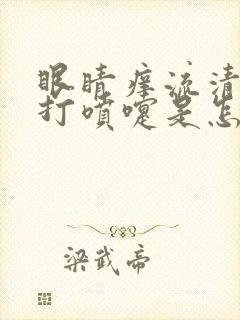 眼睛痒流清
打喷嚏是怎
梁武帝